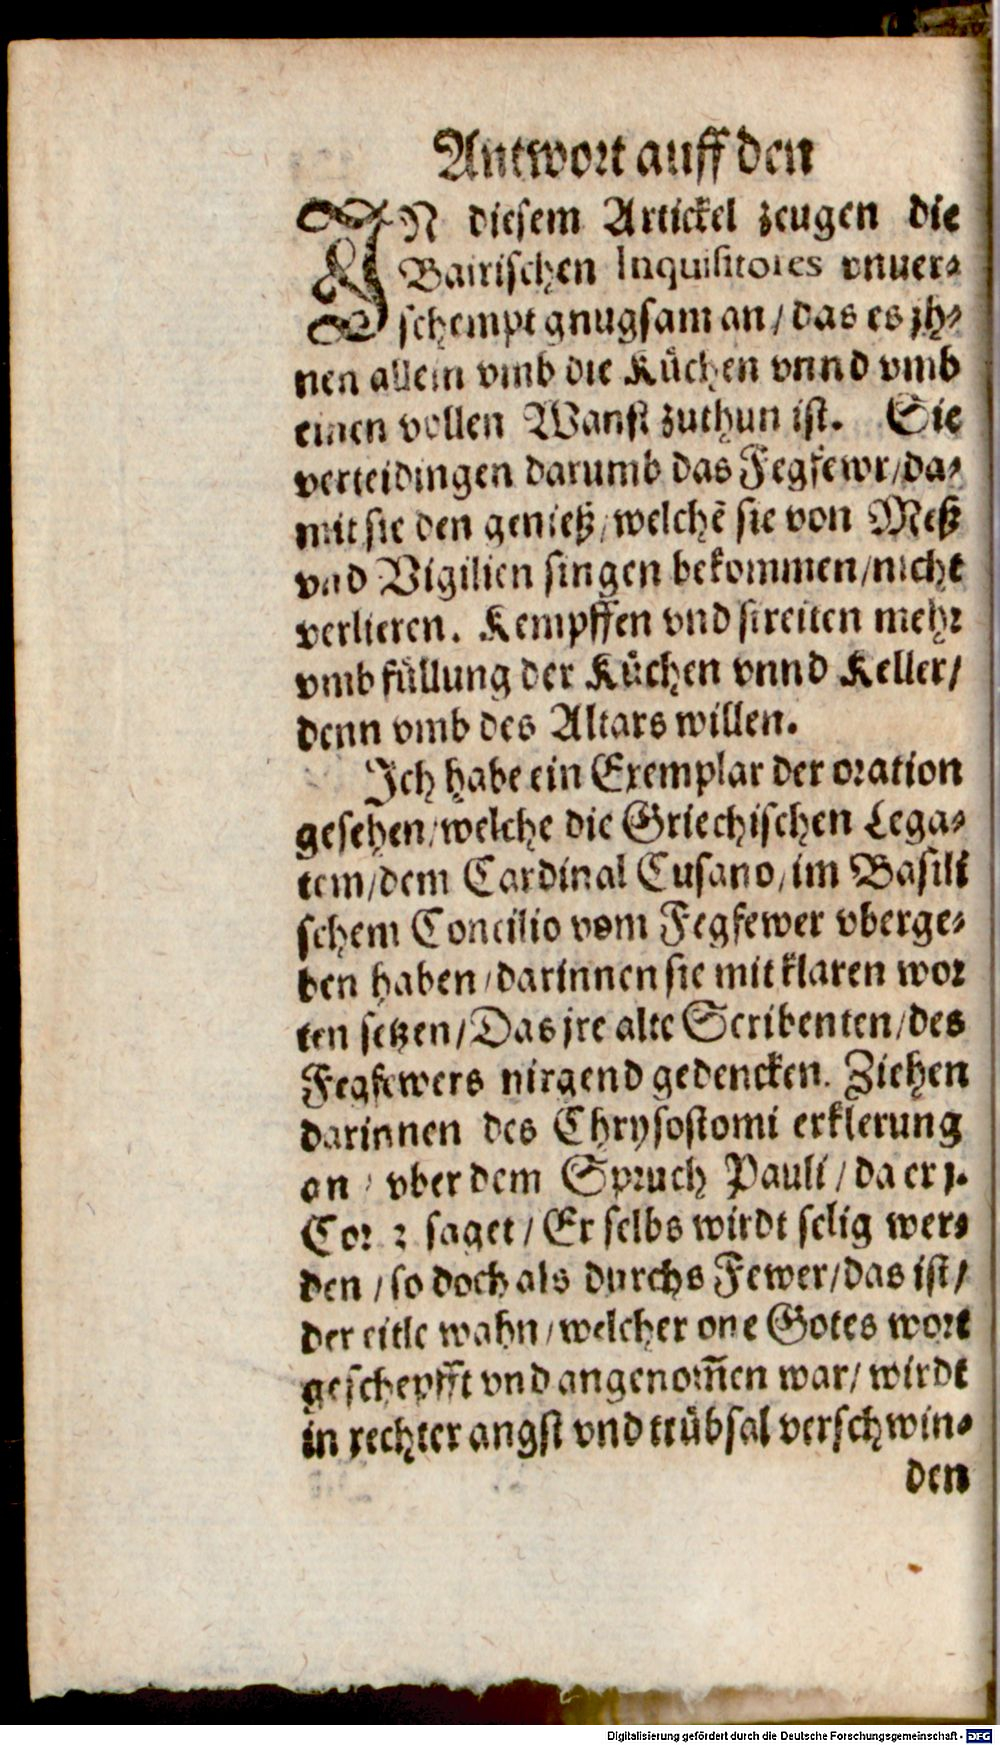 Antwort auff den
IN diesem Artickel zeugen die
Bairischen Inquisitores vnuer⸗
schempt gnugsam an/das es jh⸗
nen allein vmb die Küchen vnnd vmb
einen vollen Wanst zuthun ist. Sie
verteidingen darumb das Fegfewr/da⸗
mit sie den genietz/welchē sie von Meß
vnd Vigilien singen bekommen/nicht
verlieren. Kempffen vnd streiten mehr
vmb füllung der Küchen vnnd Keller/
denn vmb des Altars willen.
Ich habe ein Exemplar der oration
gesehen/welche die Griechischen Lega⸗
tem/dem Cardinal Cusano/im Basili
schem Concilio vom Fegfewer vberge⸗
ben haben/darinnen sie mit klaren wor
ten setzen/Das jre alte Scribenten/des
Fegfewers nirgend gedencken. Ziehen
darinnen des Chrysostomi erklerung
an/vber dem Spruch Pauli/da er j.
Cor. 3 saget/Er selbs wirdt selig wer⸗
den/so doch als durchs Fewer/das ist/
der eitle wahn/welcher one Gotes wort
geschepfft vnd angenom̄en war/wirdt
in rechter angst vnd trübsal verschwin⸗
den
Digitalisierung gefördert durch die Deutsche Forschungsgemeinschaft - DFG